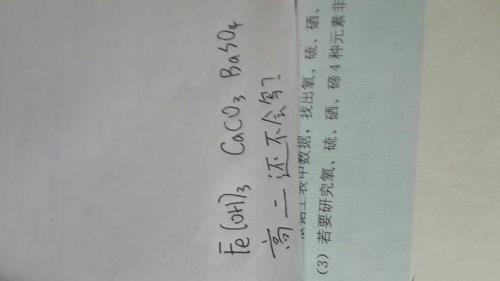 Fe(OH)₃ CaCO₃ BaSO₄
高二还不会写?
表中数据，找出氧、硫、硒、
(3) 若要研究氧、硫、硒、碲4种元素非